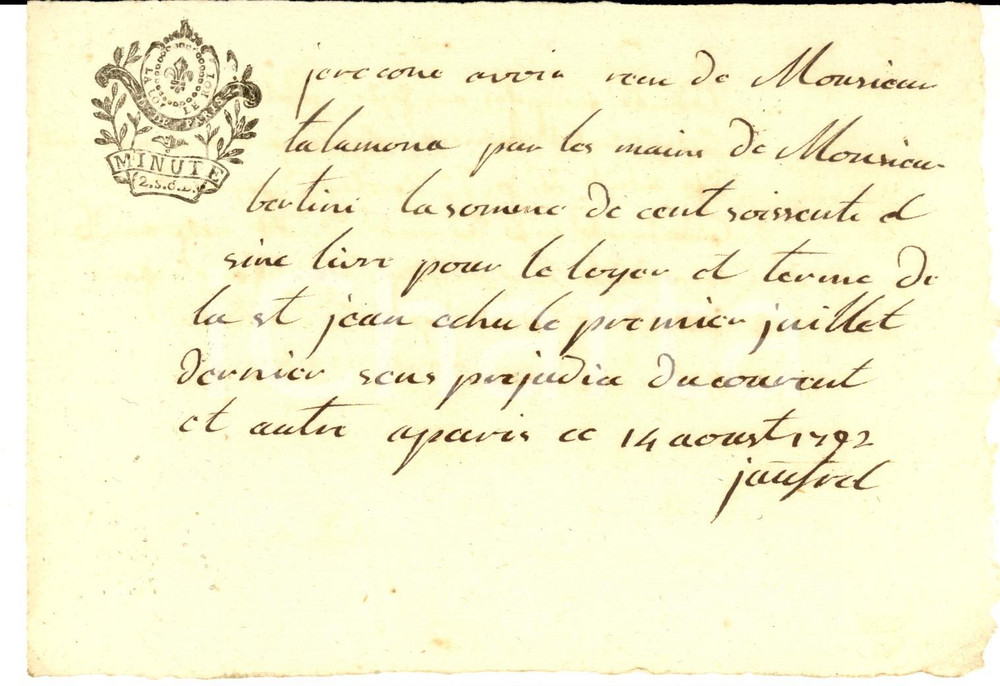 LA LOI LE ROI
DE PARIS
MINUTE
2.S.6.D.
jereconé avoir reçu de Monsieur
talamona par les mains de Monsieur
bertini la somme de cent soissente et
sinc livre pour le loyer et terme de
la st jean echu le premier juillet
dernier sans prejudice du courent
et autre a paris ce 14 aoust 1792